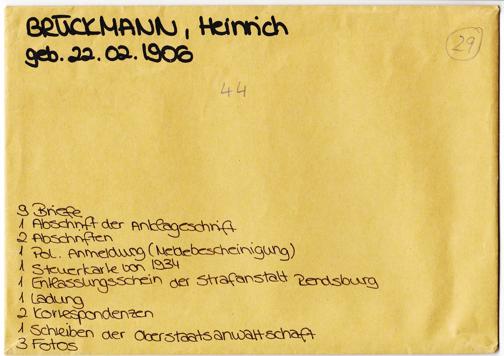 BRÜCKMANN, Heinrich
geb. 22. 02. 1906
29
44
9 Briefe
1 Abschrift der Anklageschrift
2 Abschriften
1 Pol. Anmeldung (Meldebescheinigung)
1 Steuerkarte von 1934
1 Entlassungsschein der Strafanstalt Rendsburg
1 Ladung
2 Korrespondenzen
1 Schreiben der Oberstaatsanwaltschaft
3 Fotos